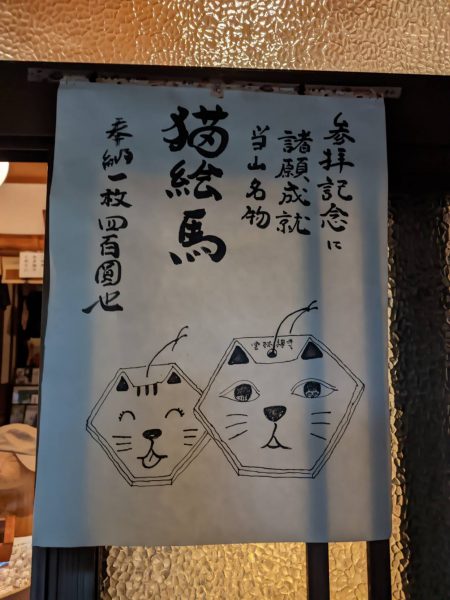 参拝記念に
諸願成就
当山名物
猫絵馬
奉納一枚四百圓也